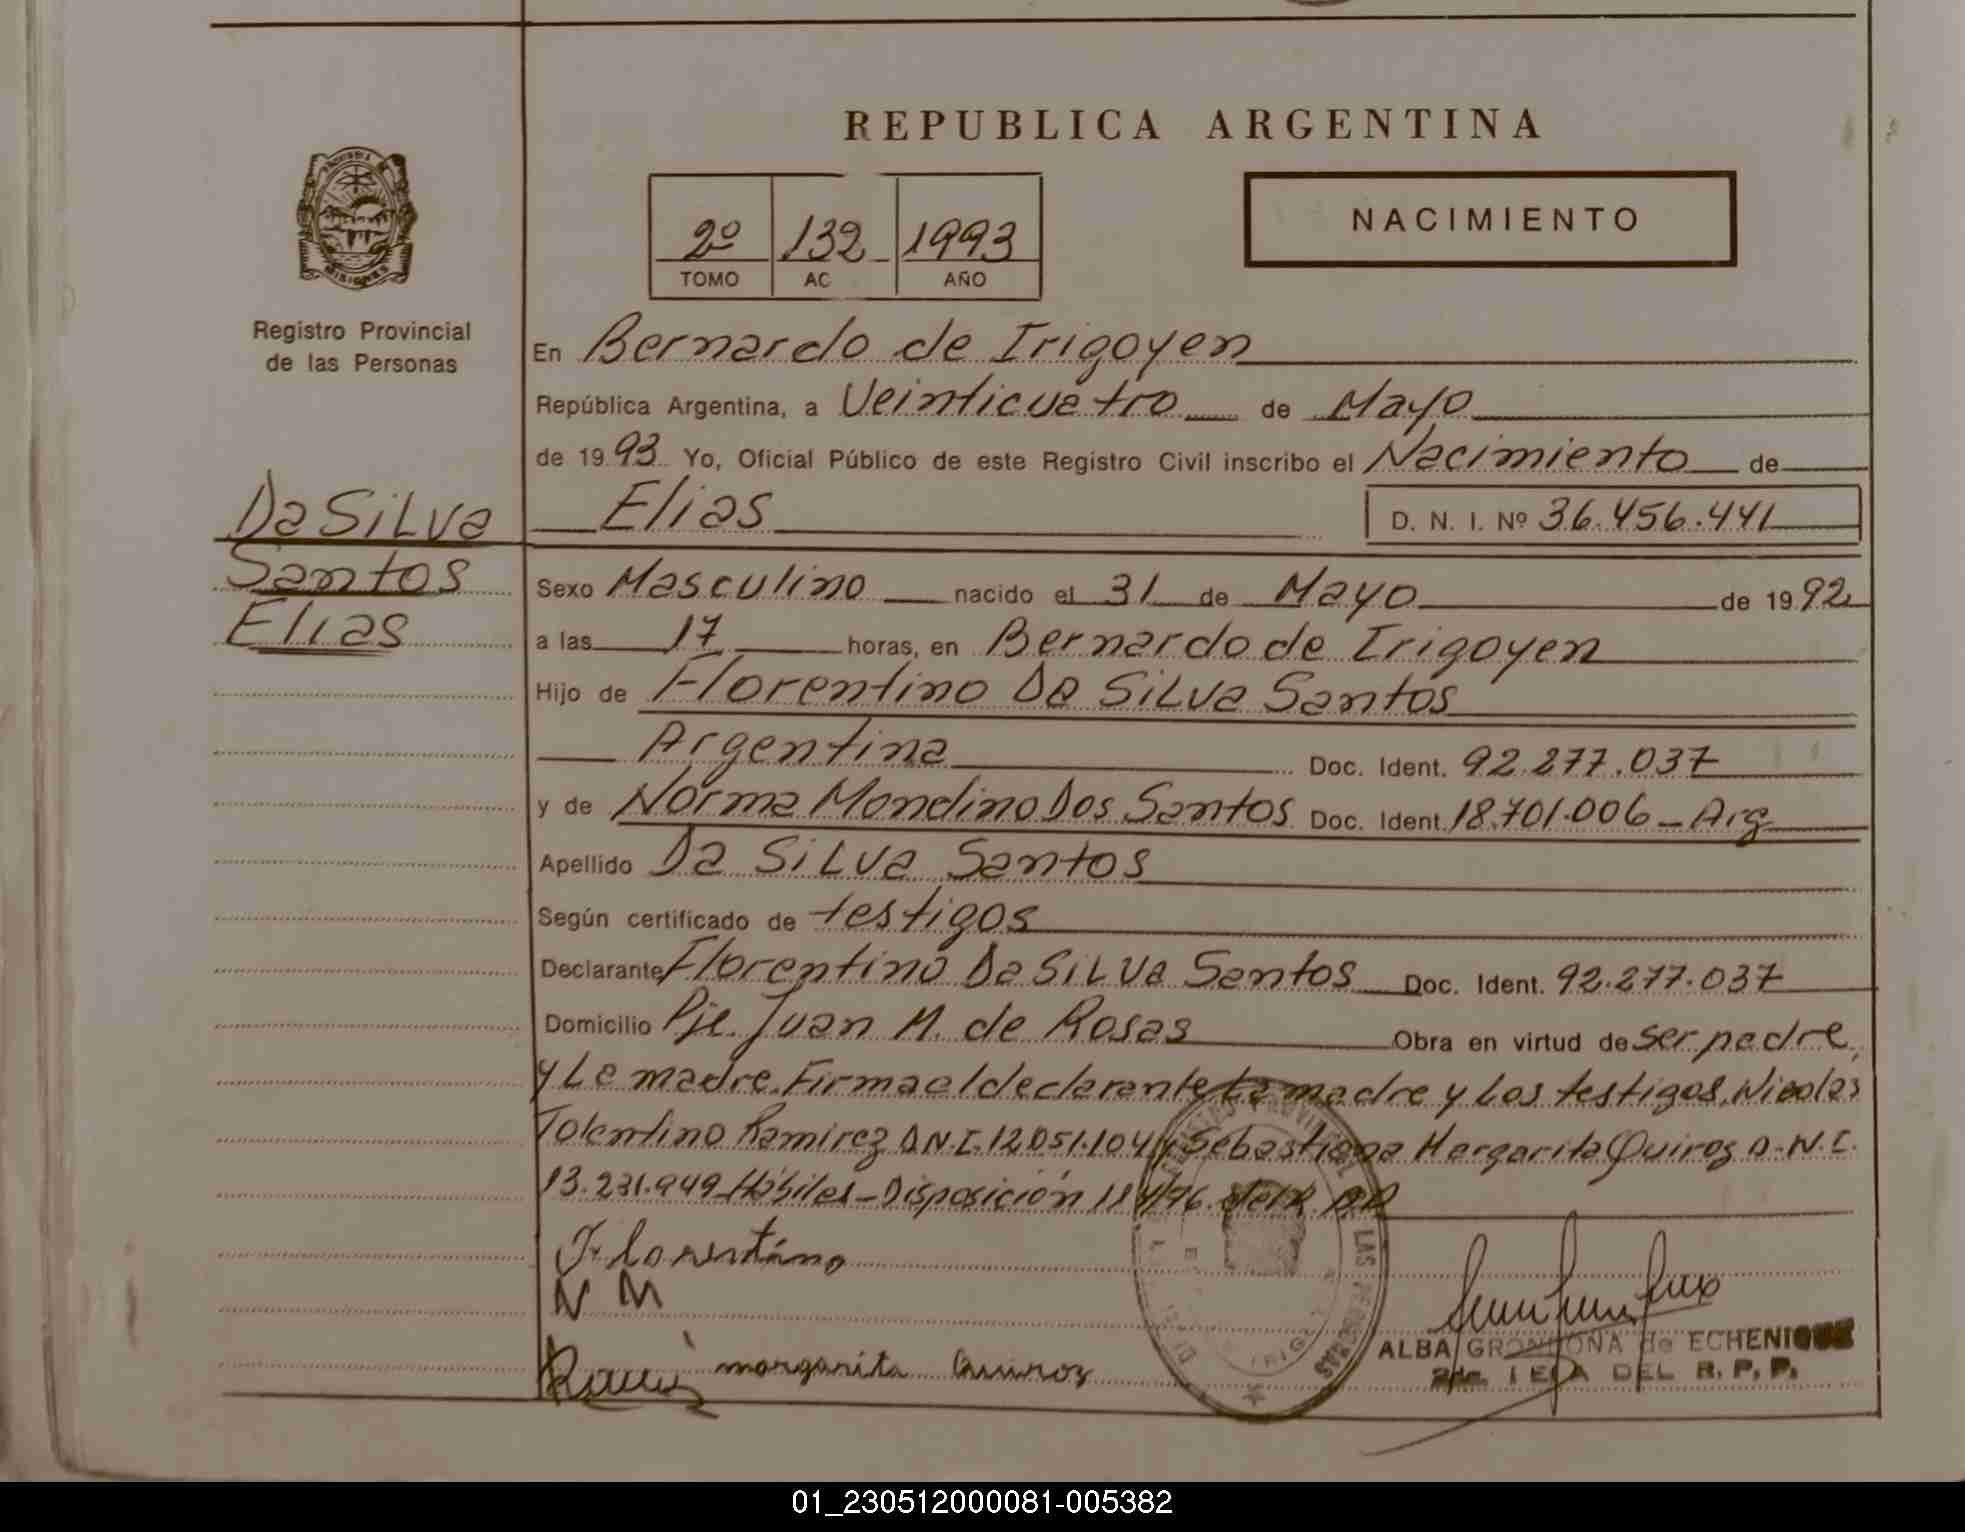 REPUBLICA ARGENTINA
2º 132 1993
TOMO AC AÑO
NACIMIENTO
MISIONES
Registro Provincial
de las Personas
Da Silva
Santos
Elias
En Bernardo de Irigoyen
República Argentina, a Veinticuatro de Mayo
de 1993 Yo, Oficial Público de este Registro Civil inscribo el Nacimiento de
Elias D. N. I. Nº 36.456.441
Sexo Masculino nacido el 31 de Mayo de 1992
a las 17 horas, en Bernardo de Irigoyen
Hijo de Florentino Da Silva Santos
Argentina Doc. Ident. 92.277.037
y de Norma Mondino Dos Santos Doc. Ident. 18.701.006 - Arg
Apellido Da Silva Santos
Según certificado de testigos
Declarante Florentino Da Silva Santos Doc. Ident. 92.277.037
Domicilio Pje. Juan M. de Rosas Obra en virtud de ser padre,
y La madre. Firma el declarante La madre y Los testigos, Nicolas
Tolentino Ramirez D.N.I. 12.051.104 y Sebastiana Margarita Quiroz D.N.I.
13.231.949 Hábiles - Disposición
Florentino
N M
margarita Quiroz
LAS PERSONAS
ALBA GRONDONA de ECHENIQUE
DEL R. P. P.
01_230512000081-005382